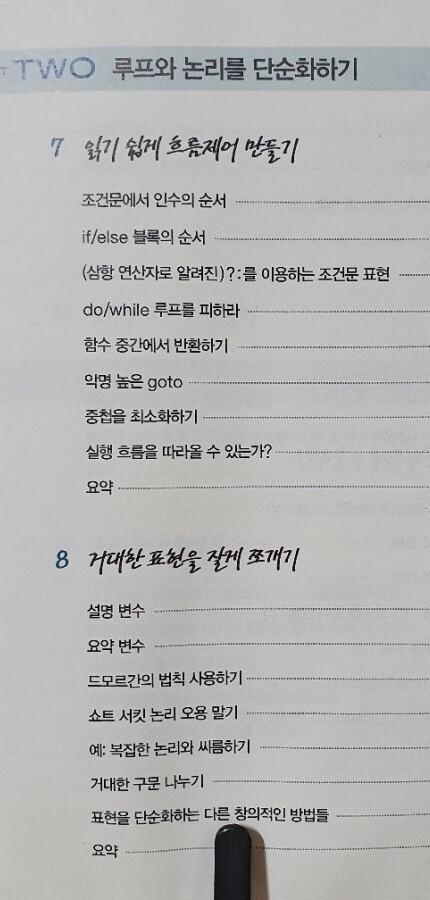 TWO 루프와 논리를 단순화하기
7 읽기 쉽게 흐름제어 만들기
조건문에서 인수의 순서
if/else 블록의 순서
(삼항 연산자로 알려진)?:를 이용하는 조건문 표현
do/while 루프를 피하라
함수 중간에서 반환하기
악명 높은 goto
중첩을 최소화하기
실행 흐름을 따라올 수 있는가?
요약
8 거대한 표현을 잘게 쪼개기
설명 변수
요약 변수
드모르간의 법칙 사용하기
쇼트 서킷 논리 오용 말기
예: 복잡한 논리와 씨름하기
거대한 구문 나누기
표현을 단순화하는 다른 창의적인 방법들
요약